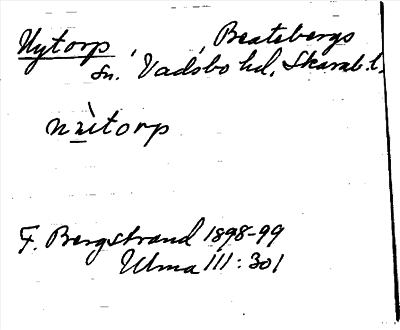 Nytorp, , Beatebergs
sn. Vadsbo hd, Skarab.l.
nzìtorp
F. Bergstrand 1898-99
Ulma 111:301